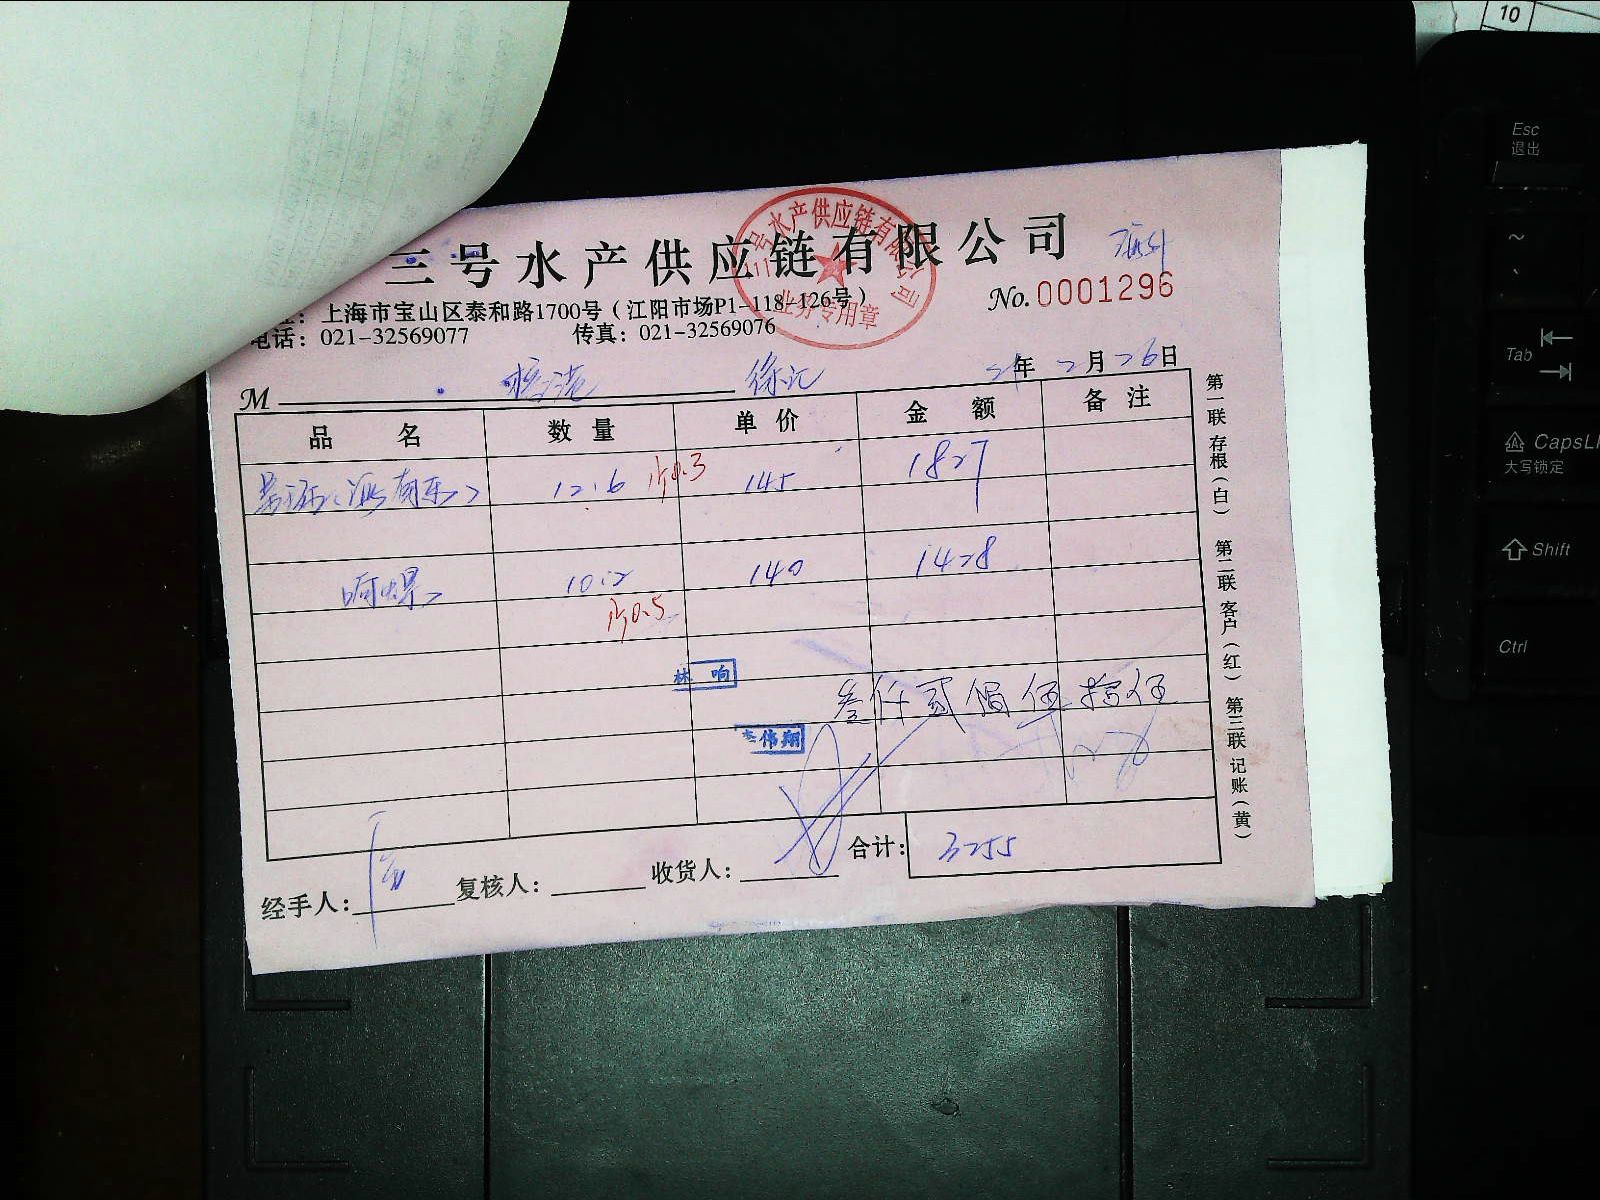 三号水产供应链有限公司
号水产供应链有限公司
业务专用章
址：上海市宝山区泰和路1700号（江阳市场P1-118-126号）
No. 0001296
电话：021-32569077 传真：021-32569076
M 徐汇 21年2月26日
品名 数量 单价 金额 备注
12.6 少0.3 145 1827
响螺 10.2 140 1428
少0.5
林响
叁仟贰佰伍拾伍
李伟翔
合计： 3255
经手人： 复核人： 收货人：
第一联 存根（白） 第二联 客户（红） 第三联 记账（黄）
10
Esc
退出
~
Tab
CapsL
大写锁定
Shift
Ctrl